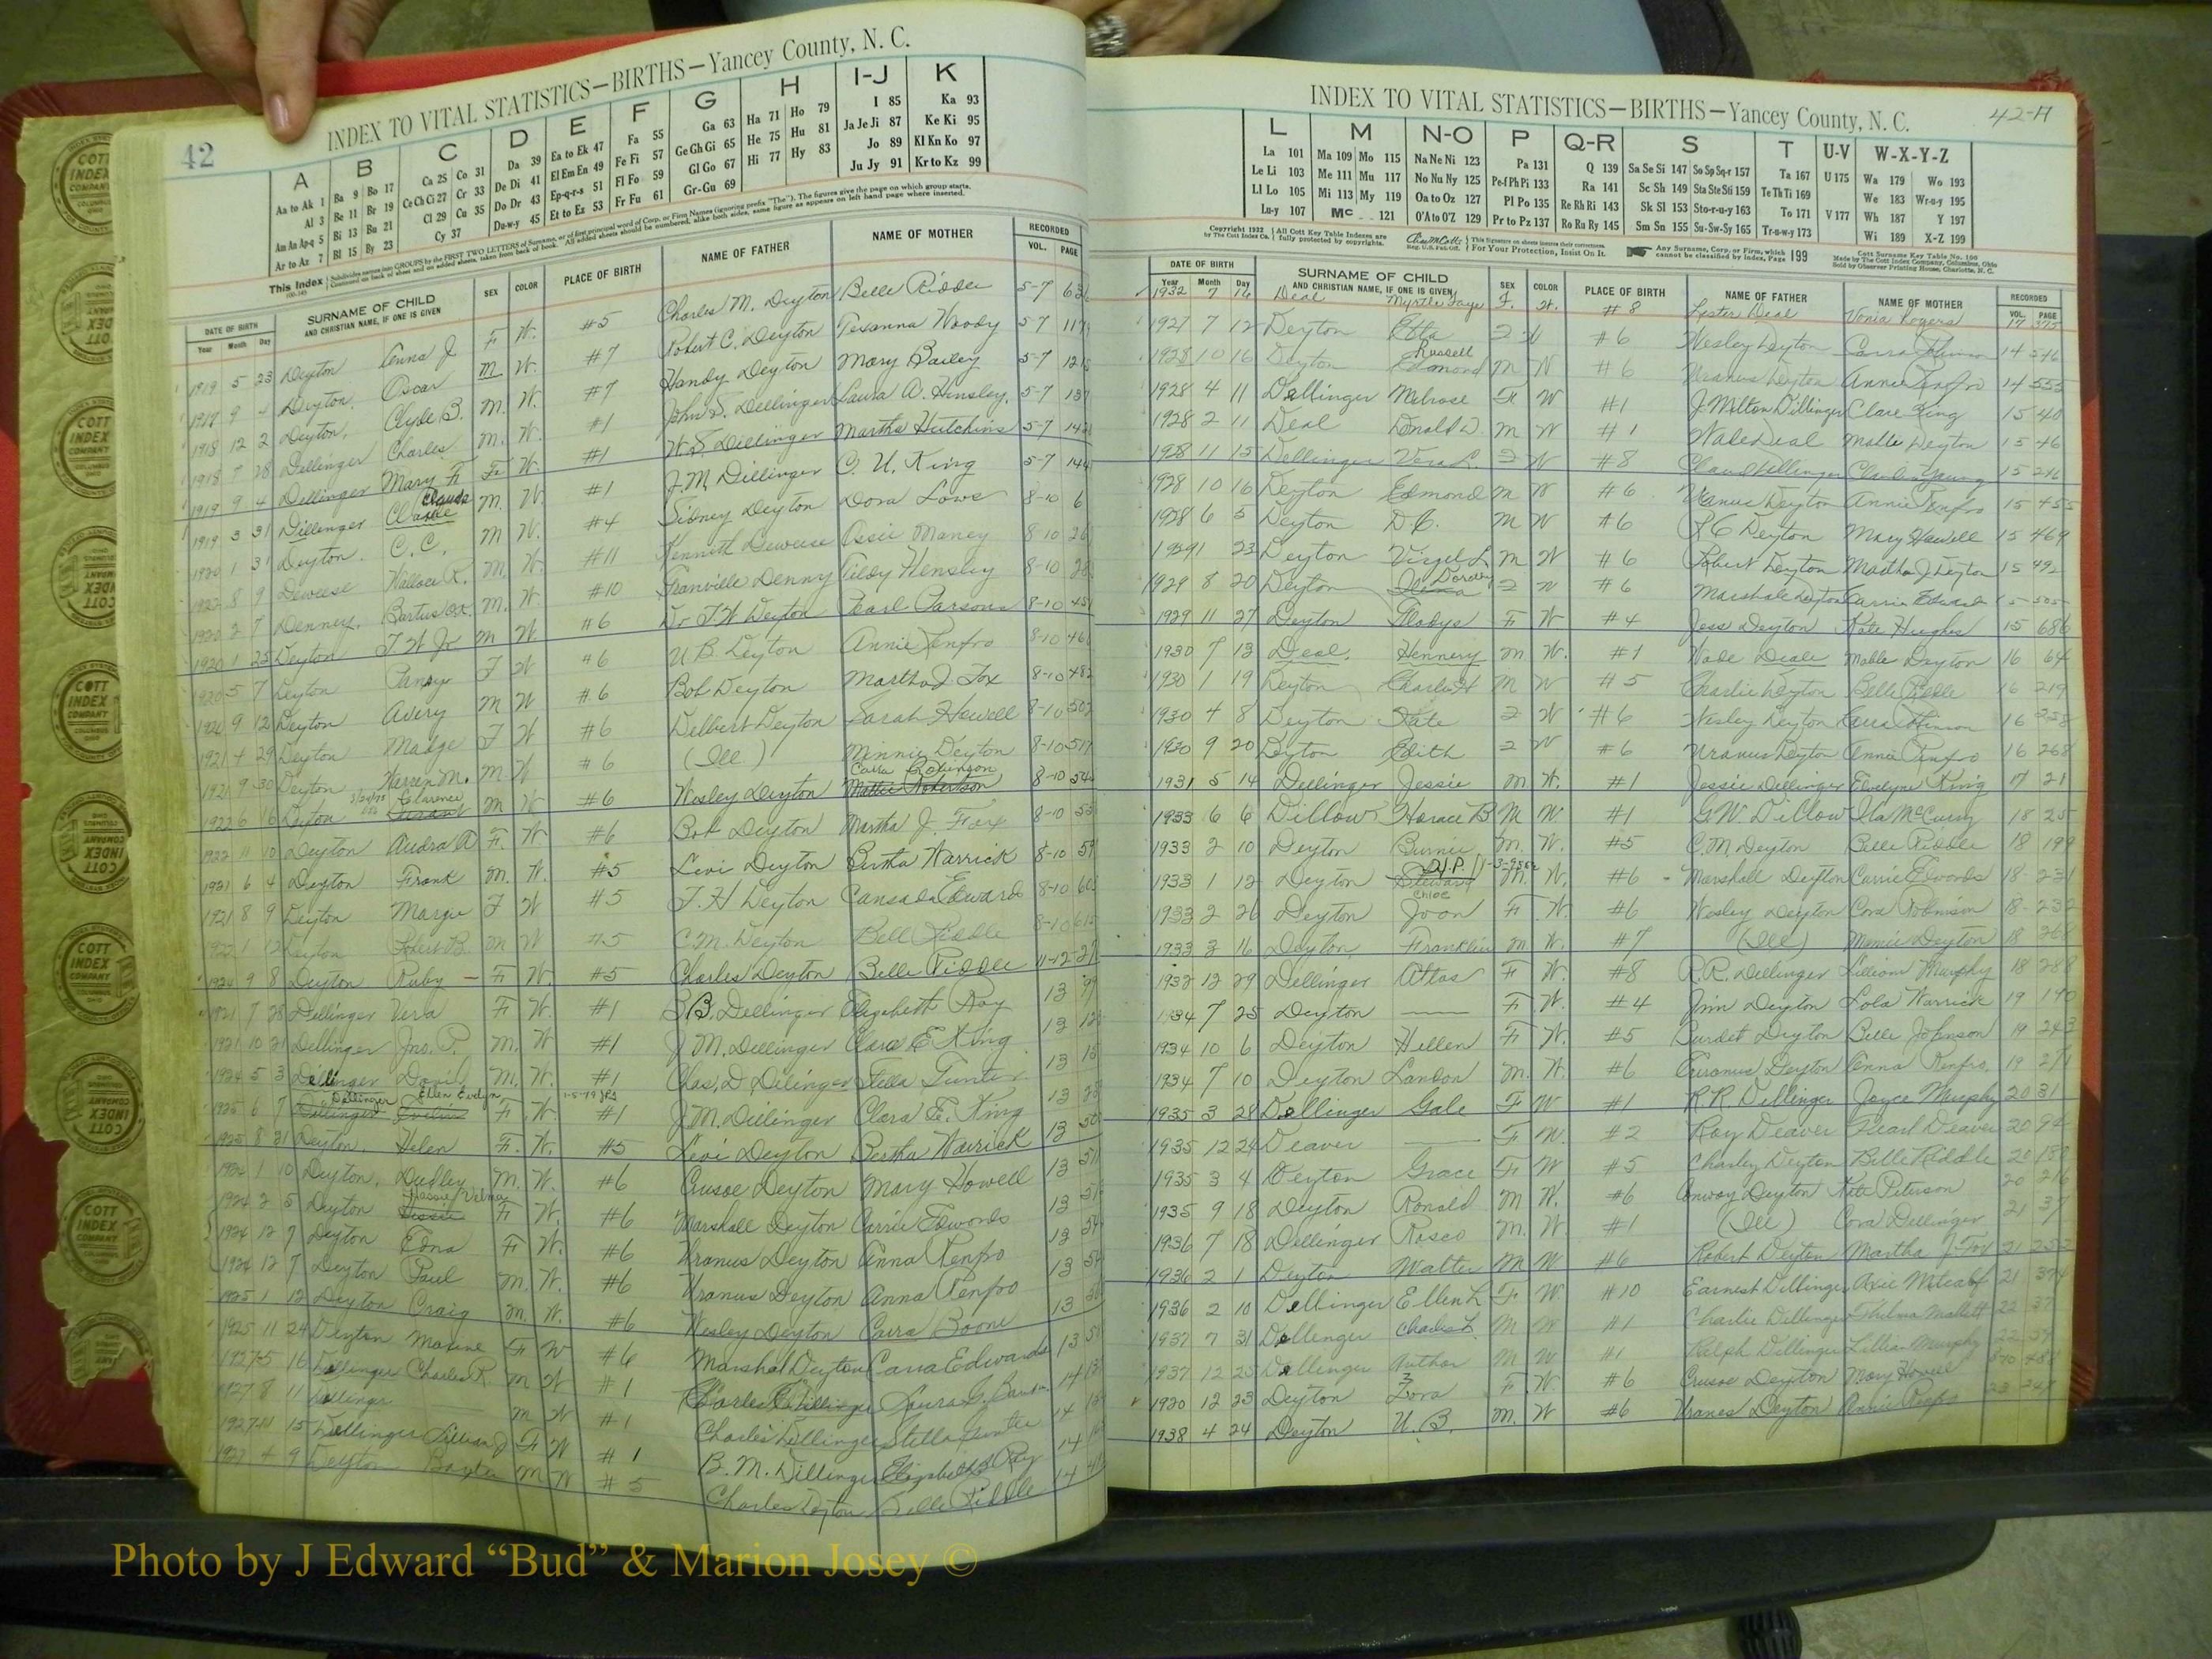 42
INDEX TO VITAL STATISTICS—BIRTHS—Yancey County, N. C.
A B C D E F G H I-J K
Aa to Ak 1 Ba 9 Bo 17 Ca 25 Co 31 Da 39 Ea to Ek 47 Fa 55 Ga 63 Ha 71 Ho 79 I 85 Ka 93
Al 3 Be 11 Br 19 Ce Ch Ci 27 Cr 33 De Di 41 El Em En 49 Fe Fi 57 Ge Gh Gi 65 He 75 Hu 81 Ja Je Ji 87 Ke Ki 95
Am An Ap-q 5 Bi 13 Bu 21 Cl 29 Cu 35 Do Dr 43 Ep-q-r-s 51 Fl Fo 59 Gl Go 67 Hi 77 Hy 83 Jo 89 Kl Kn Ko 97
Ar to Az 7 Bl 15 By 23 Cy 37 Du-w-y 45 Et to Ez 53 Fr Fu 61 Gr-Gu 69 Ju Jy 91 Kr to Kz 99
This Index Subdivides names into GROUPS by the FIRST TWO LETTERS of Surname, or of first principal word of Corp. or Firm Names (ignoring prefix "The"). The figures give the page on which group starts.
Continued on back of sheet and on added sheets, taken from back of book. All added sheets should be numbered, alike both sides, same figure as appears on left hand page where inserted.
DATE OF BIRTH SURNAME OF CHILD AND CHRISTIAN NAME, IF ONE IS GIVEN SEX COLOR PLACE OF BIRTH NAME OF FATHER NAME OF MOTHER RECORDED
Year Month Day VOL. PAGE
1919 5 23 Deyton Anna J F W. #5 Charles M. Deyton Belle Riddle 5-7
Deyton Oscar M W. #7 Robert C. Deyton Texanna Woody 5-7
1918 12 2 Deyton, Clyde B. M. W. #7 Handy Deyton Mary Bailey 5-7
1918 7 28 Dellinger Charles M. W. #1 John S. Dellinger Laura A. Hensley, 5-7
1919 9 4 Dellinger Mary F. F. W. #1 W. S. Dellinger Martha Hutchins 5-7
1919 3 31 Dillinger Claude M. W. #1 J. M. Dillinger C. U. King 5-7
1920 1 31 Deyton. C. C. M W. #4 Sidney Deyton Dora Lowe 8-10 6
8 9 Deweese Wallace R. M. W. #11 Kenneth Deweese Ossie Maney 8-10
1920 2 7 Denney, M. W. #10 Granville Denny Hensley 8-10
1920 1 25 Deyton T W Jr M W #6 Dr T. W Deyton Pearl Parsons 8-10
1920 5 7 Deyton Pansy F W #6 U B. Deyton Annie Renfro 8-10
9 12 Deyton Avery M W #6 Bob Deyton Martha J Fox 8-10
1921 4 29 Deyton Madge F W #6 Delbert Deyton Sarah Howell 8-10
1921 9 30 Deyton Warren M. M W #6 (Ill.) Minnie Deyton 8-10
1922 6 16 Deyton Clarence M W #6 Wesley Deyton Carra Robinson 8-10
1922 11 10 Deyton Audra A F. W. #6 Bob Deyton Martha J. Fox 8-10
1921 6 4 Deyton Frank M. W. #5 Levi Deyton Bertha Warrick 8-10
1921 8 9 Deyton Margie F W #5 T. H Deyton Cansada Edwards 8-10
1922 1 12 Deyton Robert B. M W #5 C. M. Deyton Bell Riddle 8-10
1924 9 8 Deyton Ruby F W. #5 Charles Deyton Belle Riddle 11-12
1921 7 28 Dellinger Vera F W. #1 B. Dellinger Elizabeth Ray 13
1921 10 21 Dellinger Jno. P. M. W #1 J M. Dellinger Clara E King 13
1924 5 3 Dellinger David M. W. #1 Chas. D Dilinger Stella Gunter 13
1925 6 7 Dellinger Ellen Evelyn F. W. #1 J. M. Dillinger Clara E. King 13
1925 8 31 Deyton. Helen F. W. #5 Levi Deyton Bertha Warrick 13
1924 1 10 Deyton, Dudley M. W. #6 Crusoe Deyton Mary Howell 13
1924 2 5 Deyton F W. #6 Marshall Deyton Carrie Edwards 13
1924 12 7 Deyton Edna F W. #6 Uranus Deyton Anna Renfro 13
1924 12 7 Deyton Paul M. W. #6 Uranus Deyton Anna Renfro 13
1925 1 12 Deyton Craig M. W. #6 Wesley Deyton Carra Boone 13
1925 11 24 Deyton Maxine F W #6 Marshal Deyton Carra Edwards 13
1927 5 16 Dellinger Charles R. M W #1 Charles Dellinger Laura G. 14
1927 8 11 Dellinger M W #1 Charles Dellinger Stella Gunter 14
1927 11 15 Dellinger Lillian J F W #1 B. M. Dillinger Elizabeth Ray 14
1927 4 9 Deyton Baxter M W #5 Charles Deyton Belle Riddle 14
42-A
INDEX TO VITAL STATISTICS—BIRTHS—Yancey County, N. C.
L M N-O P Q-R S T U-V W-X-Y-Z
La 101 Ma 109 Mo 115 Na Ne Ni 123 Pa 131 Q 139 Sa Se Si 147 So Sp Sq-r 157 Ta 167 U 175 Wa 179 Wo 193
Le Li 103 Me 111 Mu 117 No Nu Ny 125 Pe-f Ph Pi 133 Ra 141 Sc Sh 149 Sta Ste Sti 159 Te Th Ti 169 We 183 Wr-u-y 195
Ll Lo 105 Mi 113 My 119 Oa to Oz 127 Pl Po 135 Re Rh Ri 143 Sk Sl 153 Sto-r-u-y 163 To 171 V 177 Wh 187 Y 197
Lu-y 107 Mc 121 O'A to O'Z 129 Pr to Pz 137 Ro Ru Ry 145 Sm Sn 155 Su-Sw-Sy 165 Tr-u-w-y 173 Wi 189 X-Z 199
Copyright 1922 by The Cott Index Co. All Cott Key Table Indexes are fully protected by copyrights. This signature on sheets insures their correctness. For Your Protection, Insist On It. Any Surname, Corp. or Firm, which cannot be classified by Index, Page 199 Cott Surname Key Table No. 100
Made by The Cott Index Company, Columbus, Ohio
Sold by Observer Printing House, Charlotte, N. C.
DATE OF BIRTH SURNAME OF CHILD AND CHRISTIAN NAME, IF ONE IS GIVEN SEX COLOR PLACE OF BIRTH NAME OF FATHER NAME OF MOTHER RECORDED
Year Month Day VOL. PAGE
1932 7 16 Deal Myrtle Faye F. W. #8 Lester Deal Vonia Rogers 17 375
1927 7 12 Deyton Etta F W #6 Wesley Deyton 14 546
1928 10 16 Deyton Russell Edmond M W #6 Uranus Deyton Annie Renfro 14 555
1928 4 11 Dellinger Melrose F W #1 J Milton Dillinger Clare King 15 40
1928 2 11 Deal Donald D. M W #1 Wade Deal Malle Deyton 15 46
1928 11 15 Dellinger Vera L. F W #8 Claud Dellinger Young 15 216
1928 10 16 Deyton Edmond M W #6 Uranus Deyton Annie Renfro 15 455
1928 6 5 Deyton D. C. M W #6 R C Deyton Mary Howell 15 469
1929 1 23 Deyton Virgel L M W #6 Robert Deyton Martha J Deyton 15 492
1929 8 20 Deyton F W #6 Marshale Deyton Carrie Edwards 15 505
1929 11 27 Deyton Gladys F W #4 Jess Deyton Kate Hughes 15 686
1930 7 13 Deal. Hennery M W. #1 Wade Deale Malle Deyton 16 64
1930 1 19 Deyton Charlie H M W #5 Charlie Deyton Belle Riddle 16 219
1930 4 8 Deyton Kate F W #6 Wesley Deyton 16 258
1930 9 20 Deyton Edith F W #6 Uranus Deyton Annie Renfro 16 268
1931 5 14 Dellinger Jessie M. W. #1 Jessie Dellinger Evelyne King 17 21
1933 6 6 Dillow Horace B M W #1 G. W. Dillow Ila McCurry 18 25
1933 2 10 Deyton Burnie M. W. #5 C. M. Deyton Belle Riddle 18 199
1933 1 12 Deyton D.P. M. W. #6 Marshall Deyton Carrie Edwards 18 231
1933 2 26 Deyton Chloe Joan F. W. #6 Wesley Deyton Cora Robinson 18 232
1933 3 16 Deyton, Franklin M. W. #7 (Ill) Mamie Deyton 18 268
1932 12 29 Dellinger Altas F W. #8 R. R. Dellinger Lilliom Murphy 18 288
1934 7 25 Deyton —— F W. #4 Jim Deyton Lola Warrick 19 190
1934 10 6 Deyton Hellen F W. #5 Burdet Deyton Belle Johnson 19 243
1934 7 10 Deyton Landon M. W. #6 Euranus Deyton Anna Renfro. 19
1935 3 28 Dellinger Gale F W #1 R. R. Dillinger Joyce Murphy 20 31
1935 12 24 Deaver —— F W. #2 Roy Deaver Pearl Deaver 20
1935 3 4 Deyton Grace F W #5 Charley Deyton Belle Riddle 20
1935 9 18 Deyton Ronald M W. #6 Conway Deyton Kate Peterson 20 216
1936 7 18 Dellinger Rosco M. W. #1 (Ill) Cora Dellinger 21 37
1936 2 1 Deyton Walter M W #6 Robert Deyton Martha J Fox 21
1936 2 10 Dellinger Ellen L F W. #10 Earnest Dillinger Axie Metcalf 21 374
1937 7 31 Dellenger Charles L M W #1 Charlie Dillinger Thelma Mallett 22 37
1937 12 25 Dellenger Author M W #1 Ralph Dillinger Lillian Murphy 22
1920 12 23 Deyton Zora F W. #6 Crusoe Deyton Mary Howell
1938 4 24 Deyton U. B. M. W #6 Uranes Deyton Annie Renfro 23
COTT INDEX COMPANY COLUMBUS OHIO
Photo by J Edward “Bud” & Marion Josey ©